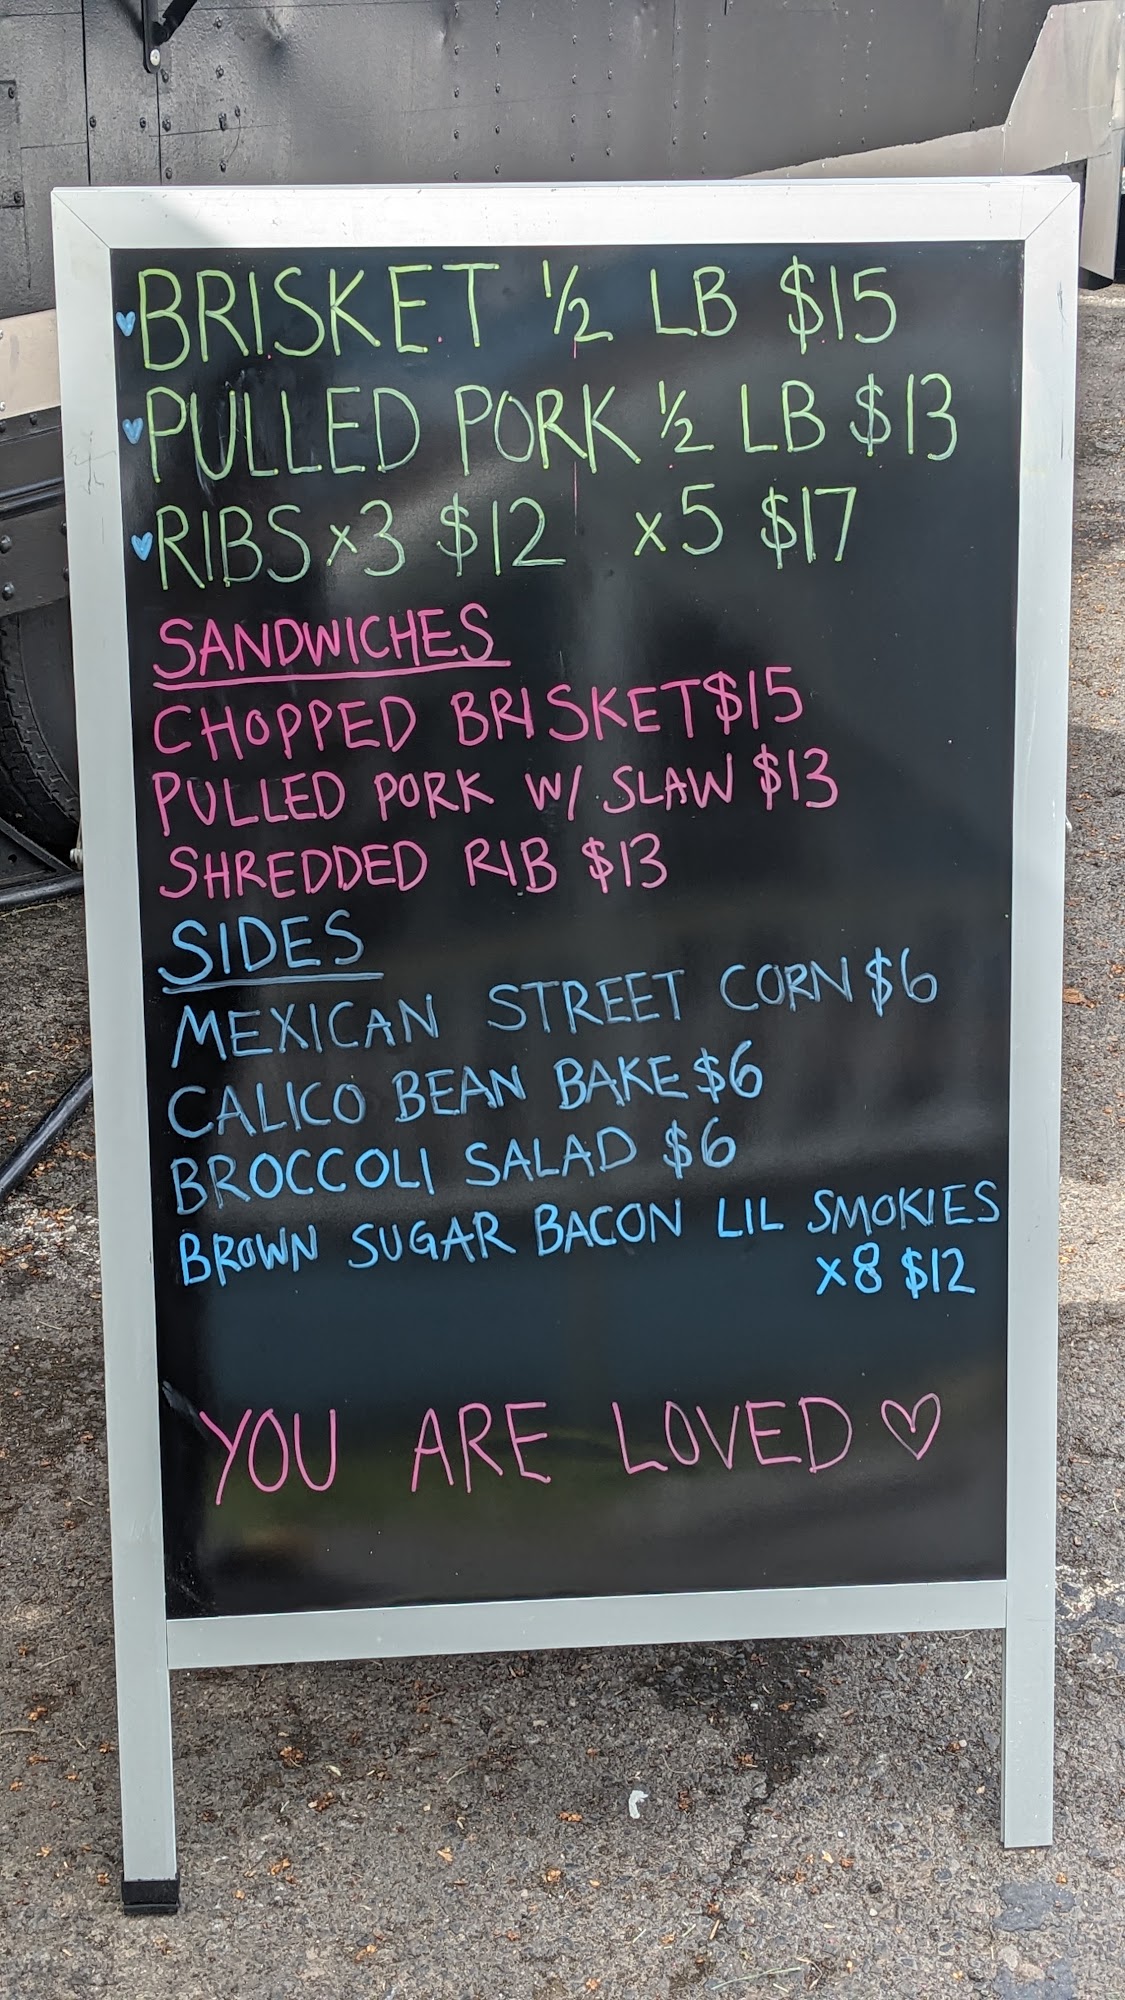 BRISKET 1/2 LB $15
PULLED PORK 1/2 LB $13
RIBS x3 $12 x5 $17
SANDWICHES
CHOPPED BRISKET $15
PULLED PORK W/ SLAW $13
SHREDDED RIB $13
SIDES
MEXICAN STREET CORN $6
CALICO BEAN BAKE $6
BROCCOLI SALAD $6
BROWN SUGAR BACON LIL SMOKIES
x8 $12
YOU ARE LOVED ♡